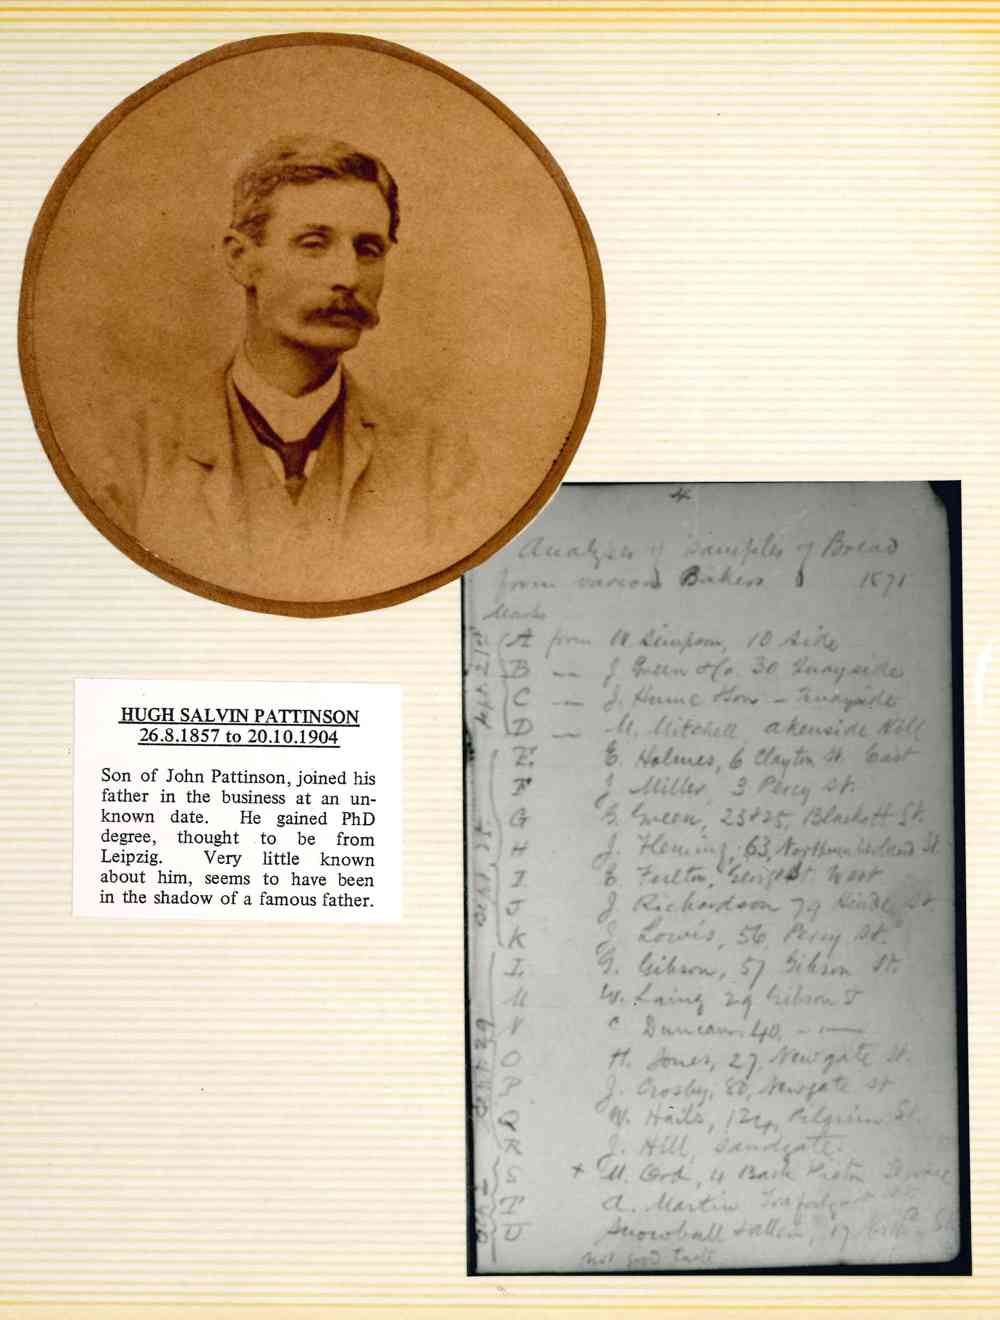 HUGH SALVIN PATTINSON
26.8.1857 to 20.10.1904
Son of John Pattinson, joined his
father in the business at an un-
known date. He gained PhD
degree, thought to be from
Leipzig. Very little known
about him, seems to have been
in the shadow of a famous father.
4
Analyses of Samples of Bread
from various Bakers 1871
Marks
A from Simpson, 10 Side
B — J Green & Co. 30 Quayside
C — J. Hume & Son — Quayside
D — M. Mitchell akenside Hill
E. E. Holmes, 6 Clayton St. East
F J Miller, 3 Percy St.
G G. Green, 23+25, Blackett St.
H J. Fleming, 63, Northumberland St.
I E. Fulton, George St West
J J Richardson 79 St.
K J Lowis, 56, Percy St.
L G. Gibson, 57 Gibson St.
M W. Laing 29 Gibson
N C Duncan. 40, - —
O H. Jones, 27, Newgate St.
P J. Crosby, 80, Newgate St
Q W. Hails, 124, Pilgrim St.
R J. Hill, Sandgate.
S + M. Ord, 4 Back
T A. Martin
U Snowball 17
not good
Sept. 21st
Sept 25
Sept. 29